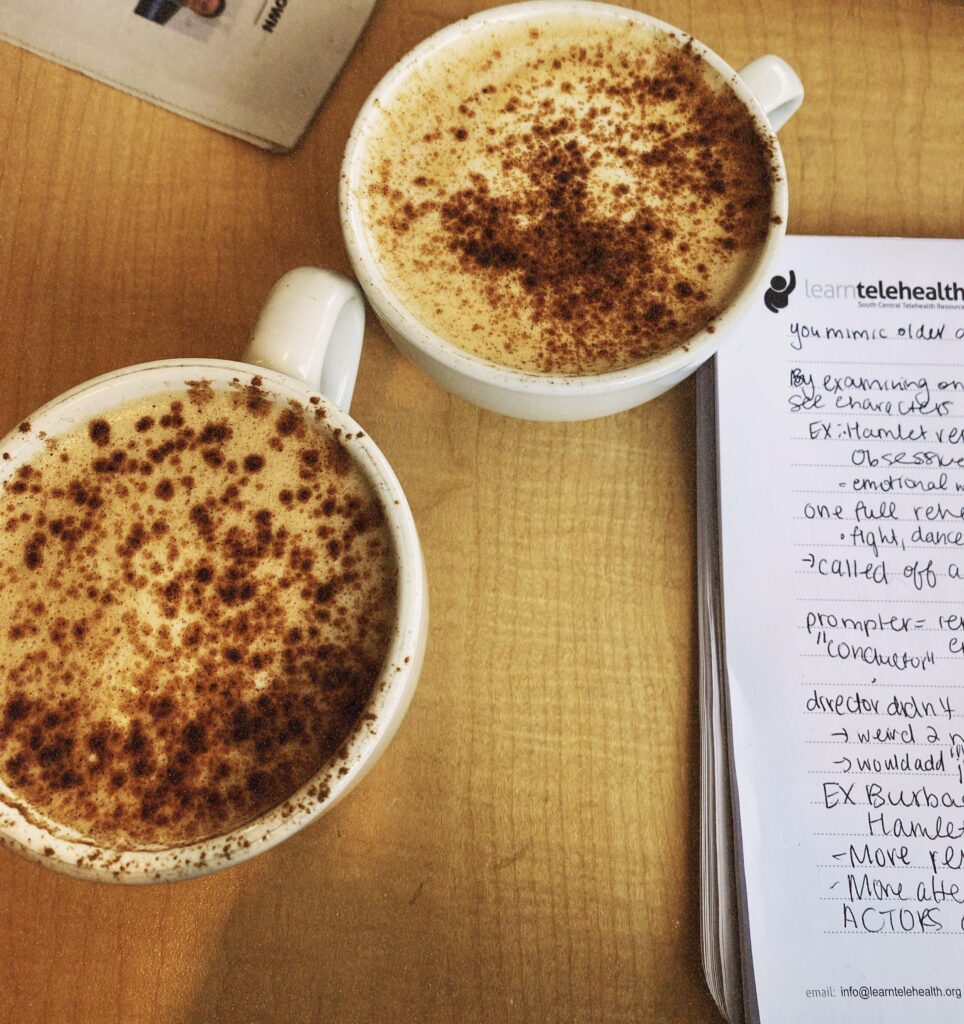 NMO
learntelehealth
South Central Telehealth Resource
you mimic older
By examining on
see characters
EX: Hamlet
obsessive
- emotional
one full
• fight, dance
→ called off a
prompter =
"conductor"
director didn't
→ weird 2
→ would add
EX
Hamlet
- More
- More
ACTORS
email: info@learntelehealth.org